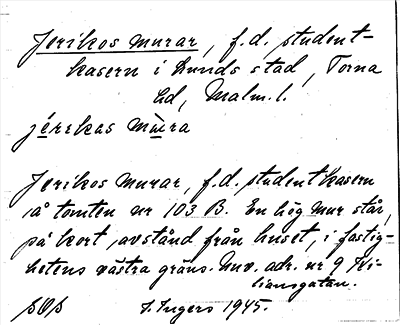 Jerikos murar, f.d. student-
kasern i Lunds stad, Torna
hd, Malm. l.
jérikas mùra
Jerikos murar, f.d. studentkasern
å tomten nr 103 B. En hög mur står,
på kort avstånd från huset, i fastig-
hetens västra gräns. Nuv. adr. nr 9 Ki-
liansgatan.
I. Ingers 1945.